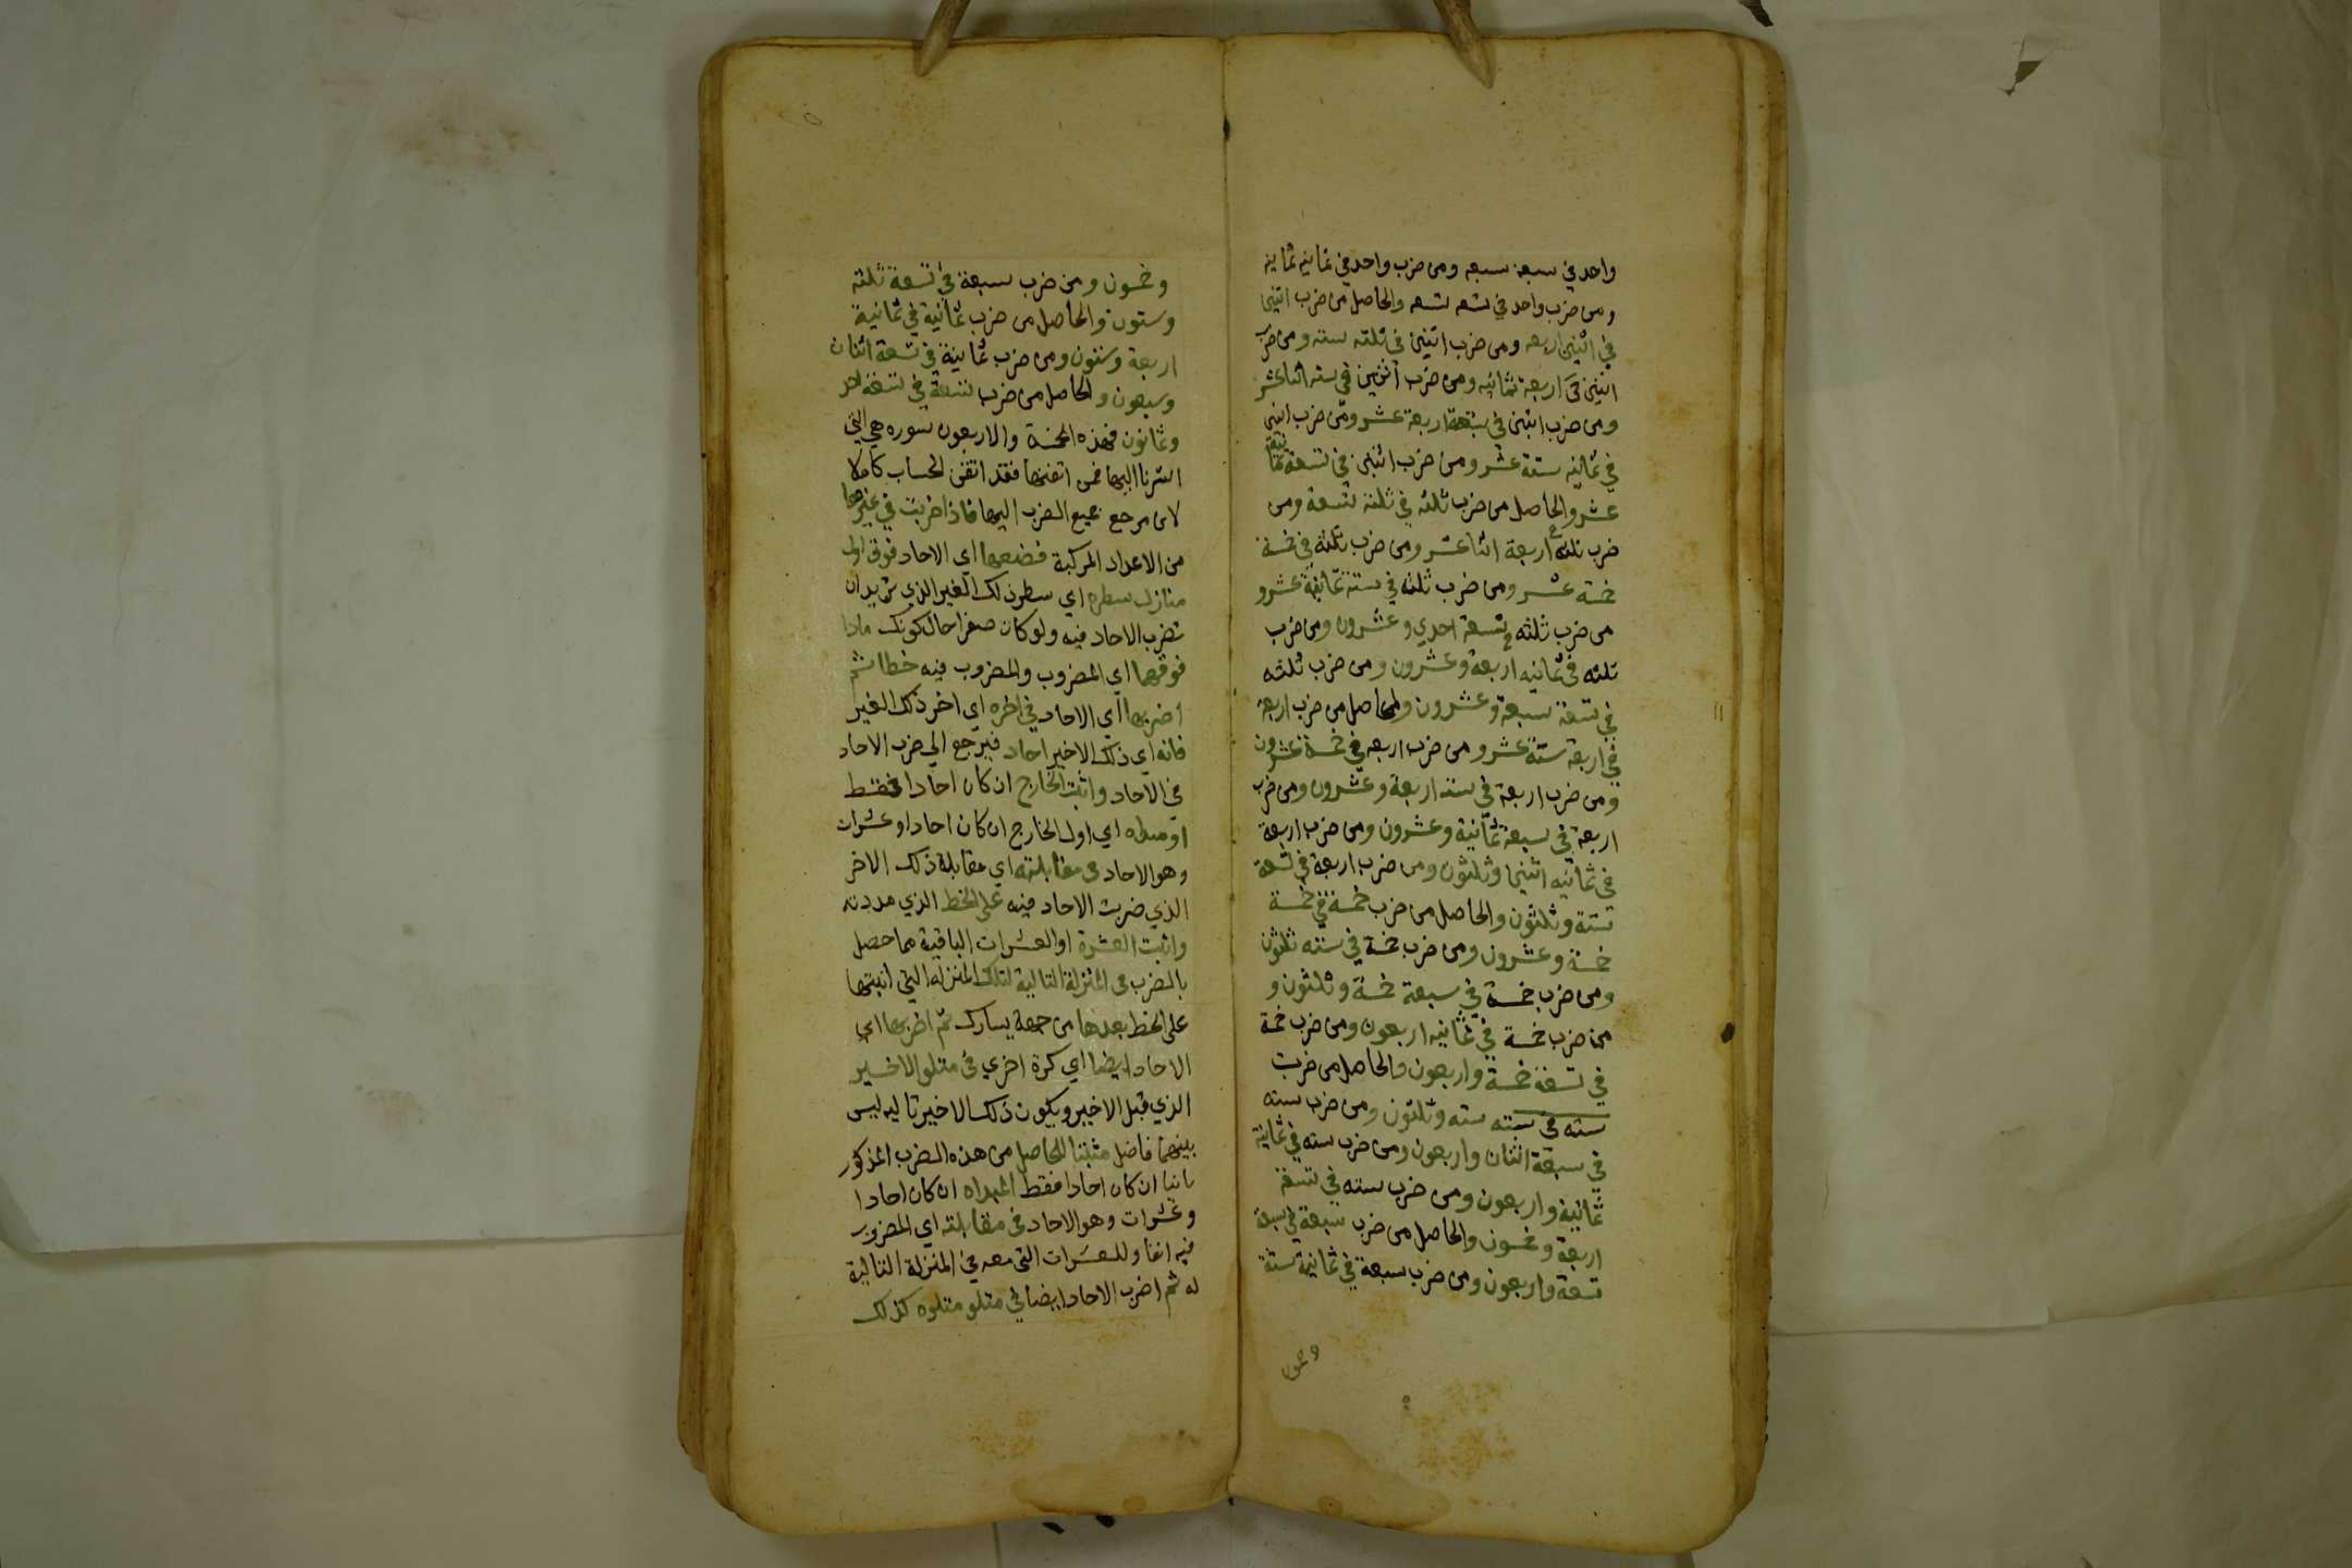 واحد في سبعة سبعه ومن ضرب واحد في ثمانيه ثمانيه
ومن ضرب واحد في تسعه تسعه والحاصل من ضرب اثنين
في اثنين اربعه ومن ضرب اثنين في ثلثه سته ومن ضرب
اثنين في اربعة ثمانيه ومن ضرب اثنين في سته اثنا عشر
ومن ضرب اثنين في سبعة اربعة عشر ومن ضرب اثنين
في ثمانيه ستة عشر ومن ضرب اثنين في تسعة ثمانية
عشر والحاصل من ضرب ثلثه في ثلثة تسعة ومن
ضرب ثلثه في اربعة اثنا عشر ومن ضرب ثلثه في خمسة
خمسة عشر ومن ضرب ثلثه في ستة ثمانية عشر و
من ضرب ثلثه في سبعة احدي وعشرون ومن ضرب
ثلثه في ثمانيه اربعة وعشرون ومن ضرب ثلثه
في تسعة سبعة وعشرون والحاصل من ضرب اربعة
في اربعة ستة عشر ومن ضرب اربعه في خمسة عشرون
ومن ضرب اربعة في ستة اربعة وعشرون ومن ضرب
اربعة في سبعة ثمانية وعشرون ومن ضرب اربعة
في ثمانيه اثنين وثلثون ومن ضرب اربعة في تسعة
ستة وثلثون والحاصل من ضرب خمسة في خمسة
خمسة وعشرون ومن ضرب خمسة في سته ثلثون
ومن ضرب خمسة في سبعة خمسة وثلثون و
من ضرب خمسة في ثمانيه اربعون ومن ضرب خمسة
في تسعة خمسة واربعون والحاصل من ضرب
سته في سته سته وثلثون ومن ضرب سته
في سبعة اثنان واربعون ومن ضرب سته في ثمانية
ثمانية واربعون ومن ضرب سته في تسعة
اربعة وخمسون والحاصل من ضرب سبعة في سبعة
تسعة واربعون ومن ضرب سبعة في ثمانية ستة
وخمسون
وخمسون ومن ضرب سبعة في تسعة ثلثه
وستون والحاصل من ضرب ثمانية في ثمانية
اربعة وستون ومن ضرب ثمانية في تسعة اثنان
وسبعون والحاصل من ضرب تسعة في تسعة احد
وثمانون فهذه الخمسة والاربعون صوره هي التي
اشرنا اليها فمن اتقنها فقد اتقن الحساب كاملا
لان مرجع جميع الضرب اليها فاذا ضربت في غيرها
من الاعداد المركبة فضعها اي الاحاد فوق اول
منازل سطره اي سطر ذلك الغير الذي تريد ان
تضرب الاحاد فيه ولو كان صفرا حال كونك مادا
فوقهما اي المضروب والمضروب فيه خطا ثم
اضربها اي الاحاد في اخره اي اخر ذلك الغير
فانه اي ذلك الاخير احاد فيرجع الي ضرب الاحاد
في الاحاد واثبت الخارج ان كان احادا فقط
او مبداه اي اول الخارج ان كان احادا وعشرات
وهو الاحاد في مقابلته اي مقابلة ذلك الاخر
الذي ضربت الاحاد فيه علي الخط الذي مددته
واثبت العشرة او العشرات الباقية مما حصل
بالضرب في المنزلة التالية لتلك المنزله التي اثبتها
علي الخط بعدها من جهة يسارك ثم اضربها اي
الاحاد ايضا اي كرة اخري في متلو الاخير
الذي قبل الاخير ويكون ذلك الاخير تاليه ليس
بينهما فاضل مثبتا للحاصل من هذه الضرب المذكور
ثانيا ان كان احادا فقط المبداه ان كان احادا
وعشرات وهو الاحاد في مقابلته اي المضروب
فيه انفا وللعشرات التي معه في المنزلة التالية
له ثم اضرب الاحاد ايضا في متلو متلوه كذلك